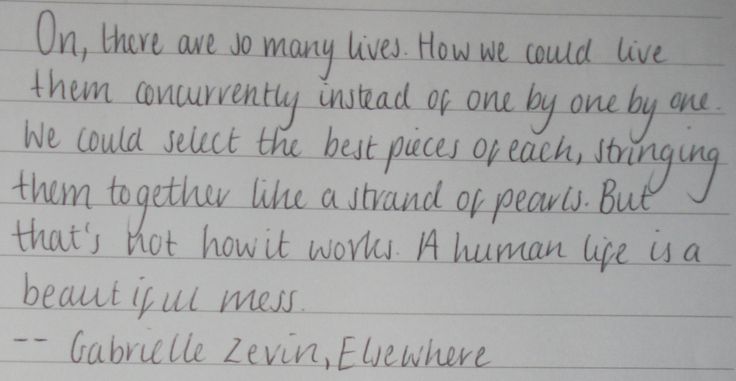 On, there are so many lives. How we could live
them concurrently instead of one by one by one.
We could select the best pieces of each, stringing
them together like a strand of pearls. But
that's not how it works. A human life is a
beautiful mess.
-- Gabrielle Zevin, Elsewhere